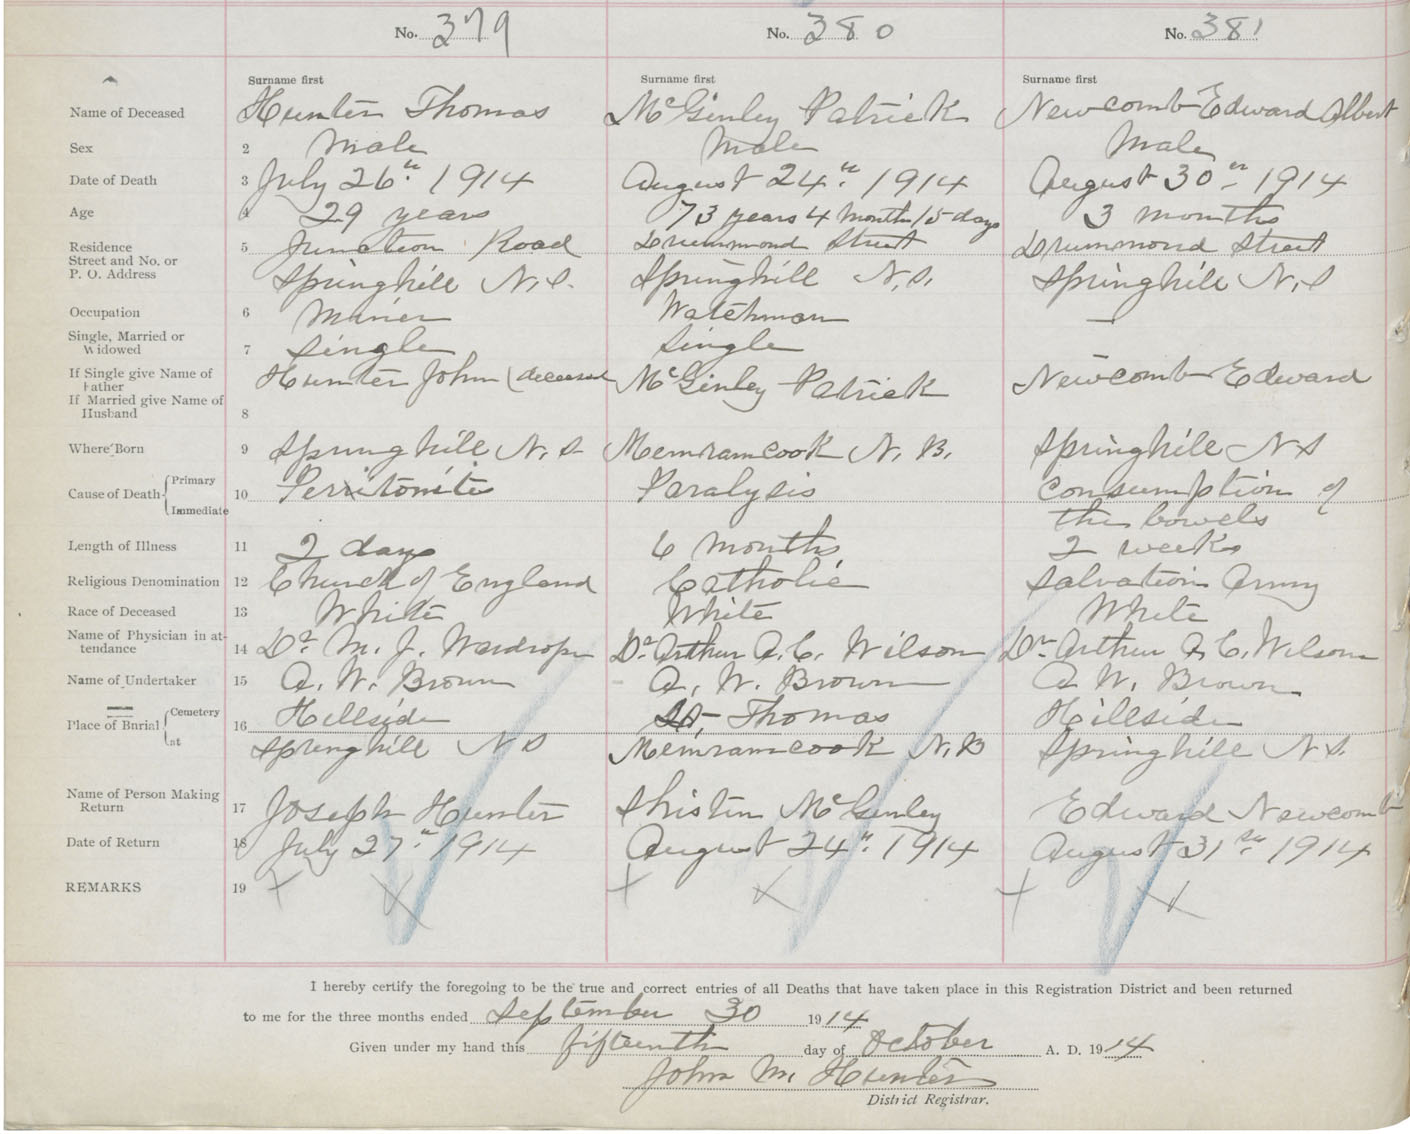 No. 379 No. 380 No. 381
Surname first Surname first Surname first
Name of Deceased Hunter Thomas McGinley Patrick Newcomb Edward Albert
Sex 2 Male Male Male
Date of Death 3 July 26th 1914 August 24th 1914 August 30th 1914
Age 4 29 years 73 years 4 months 15 days 3 months
Residence 5 Junction Road Drummond Street Drummond Street
Street and No. or
P. O. Address Springhill N.S. Springhill N.S. Springhill N.S
Occupation 6 Miner Watchman —
Single, Married or
Widowed 7 Single Single
If Single give Name of
Father Hunter John (deceased McGinley Patrick Newcomb Edward
If Married give Name of
Husband 8
Where Born 9 Springhill N.S Memramcook N.B. Springhill N S
Cause of Death Primary
10 Perritonites Paralysis Consumption of
Immediate the bowels
Length of Illness 11 2 days 6 months 2 weeks
Religious Denomination 12 Church of England Catholic Salvation Army
Race of Deceased 13 White White White
Name of Physician in at-
tendance 14 Dr. M. J. Wardrope Dr. Arthur A. C. Wilson Dr. Arthur A. C. Wilson
Name of Undertaker 15 A. W. Brown A. W. Brown A W. Brown
Place of Burial Cemetery 16 Hillside St. Thomas Hillside
at Springhill N S Memramcook N.B Springhill N S.
Name of Person Making
Return 17 Joseph Hunter McGinley Edward Newcomb
Date of Return 18 July 27th 1914 August 24th 1914 August 31st 1914
REMARKS 19 X X X X X X
I hereby certify the foregoing to be the true and correct entries of all Deaths that have taken place in this Registration District and been returned
to me for the three months ended September 30 1914
Given under my hand this fifteenth day of October A. D. 1914
John M. Hunter
District Registrar.